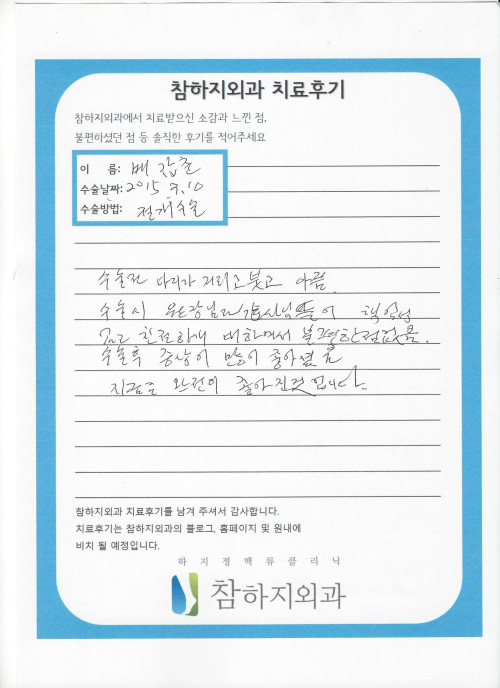 참하지외과 치료후기
참하지외과에서 치료받으신 소감과 느낀 점,
불편하셨던 점 등 솔직한 후기를 적어주세요
이 름: 배 갑준
수술날짜: 2015 9.10
수술방법: 절개수술
수술전 다리가 저리고 붓고 아픔.
수술시 원장님과 간호사님들이
친절하게 대하여서 불평한점없음.
수술후 증상이 많이 좋아졌음
지금은 완전이 좋아진것입니다.
참하지외과 치료후기를 남겨 주셔서 감사합니다.
치료후기는 참하지외과의 블로그, 홈페이지 및 원내에
비치 될 예정입니다.
하지정맥류클리닉
참하지외과